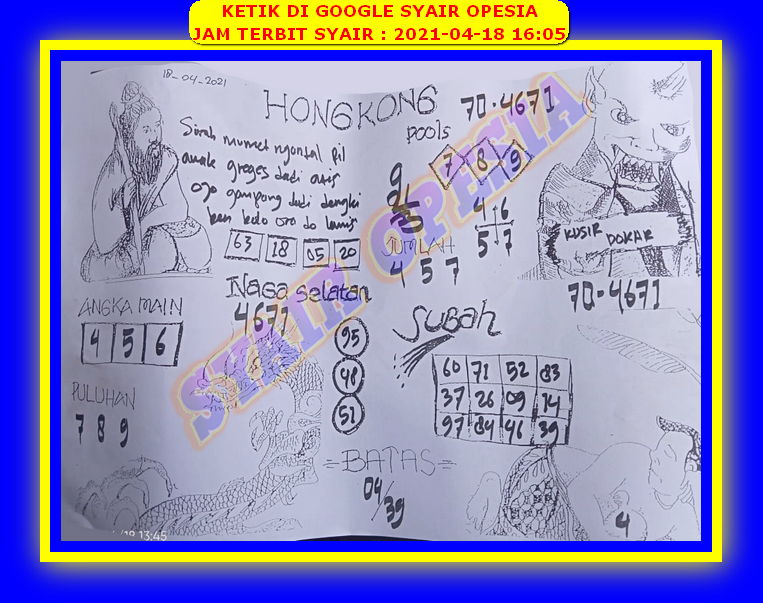 KETIK DI GOOGLE SYAIR OPESIA
JAM TERBIT SYAIR : 2021-04-18 16:05
18-04-2021
HONGKONG
pools
70.4671
Sirah mumet ngontal pil
awak greges dadi atis
ojo gampang dadi dengki
ben
63 18 05 20
9/3
7 8 9
4 6
5 7
JUMLAH
4 5 7
KUSIR DOKAR
70.4671
Naga selatan
4671
ANGKA MAIN
4 5 6
PULUHAN
7 8 9
95
48
51
SUBAH
60 71 52 83
37 26 09 14
97 84 46 39
=BATAS=
04/39
4
13:45
SYAIR OPESIA